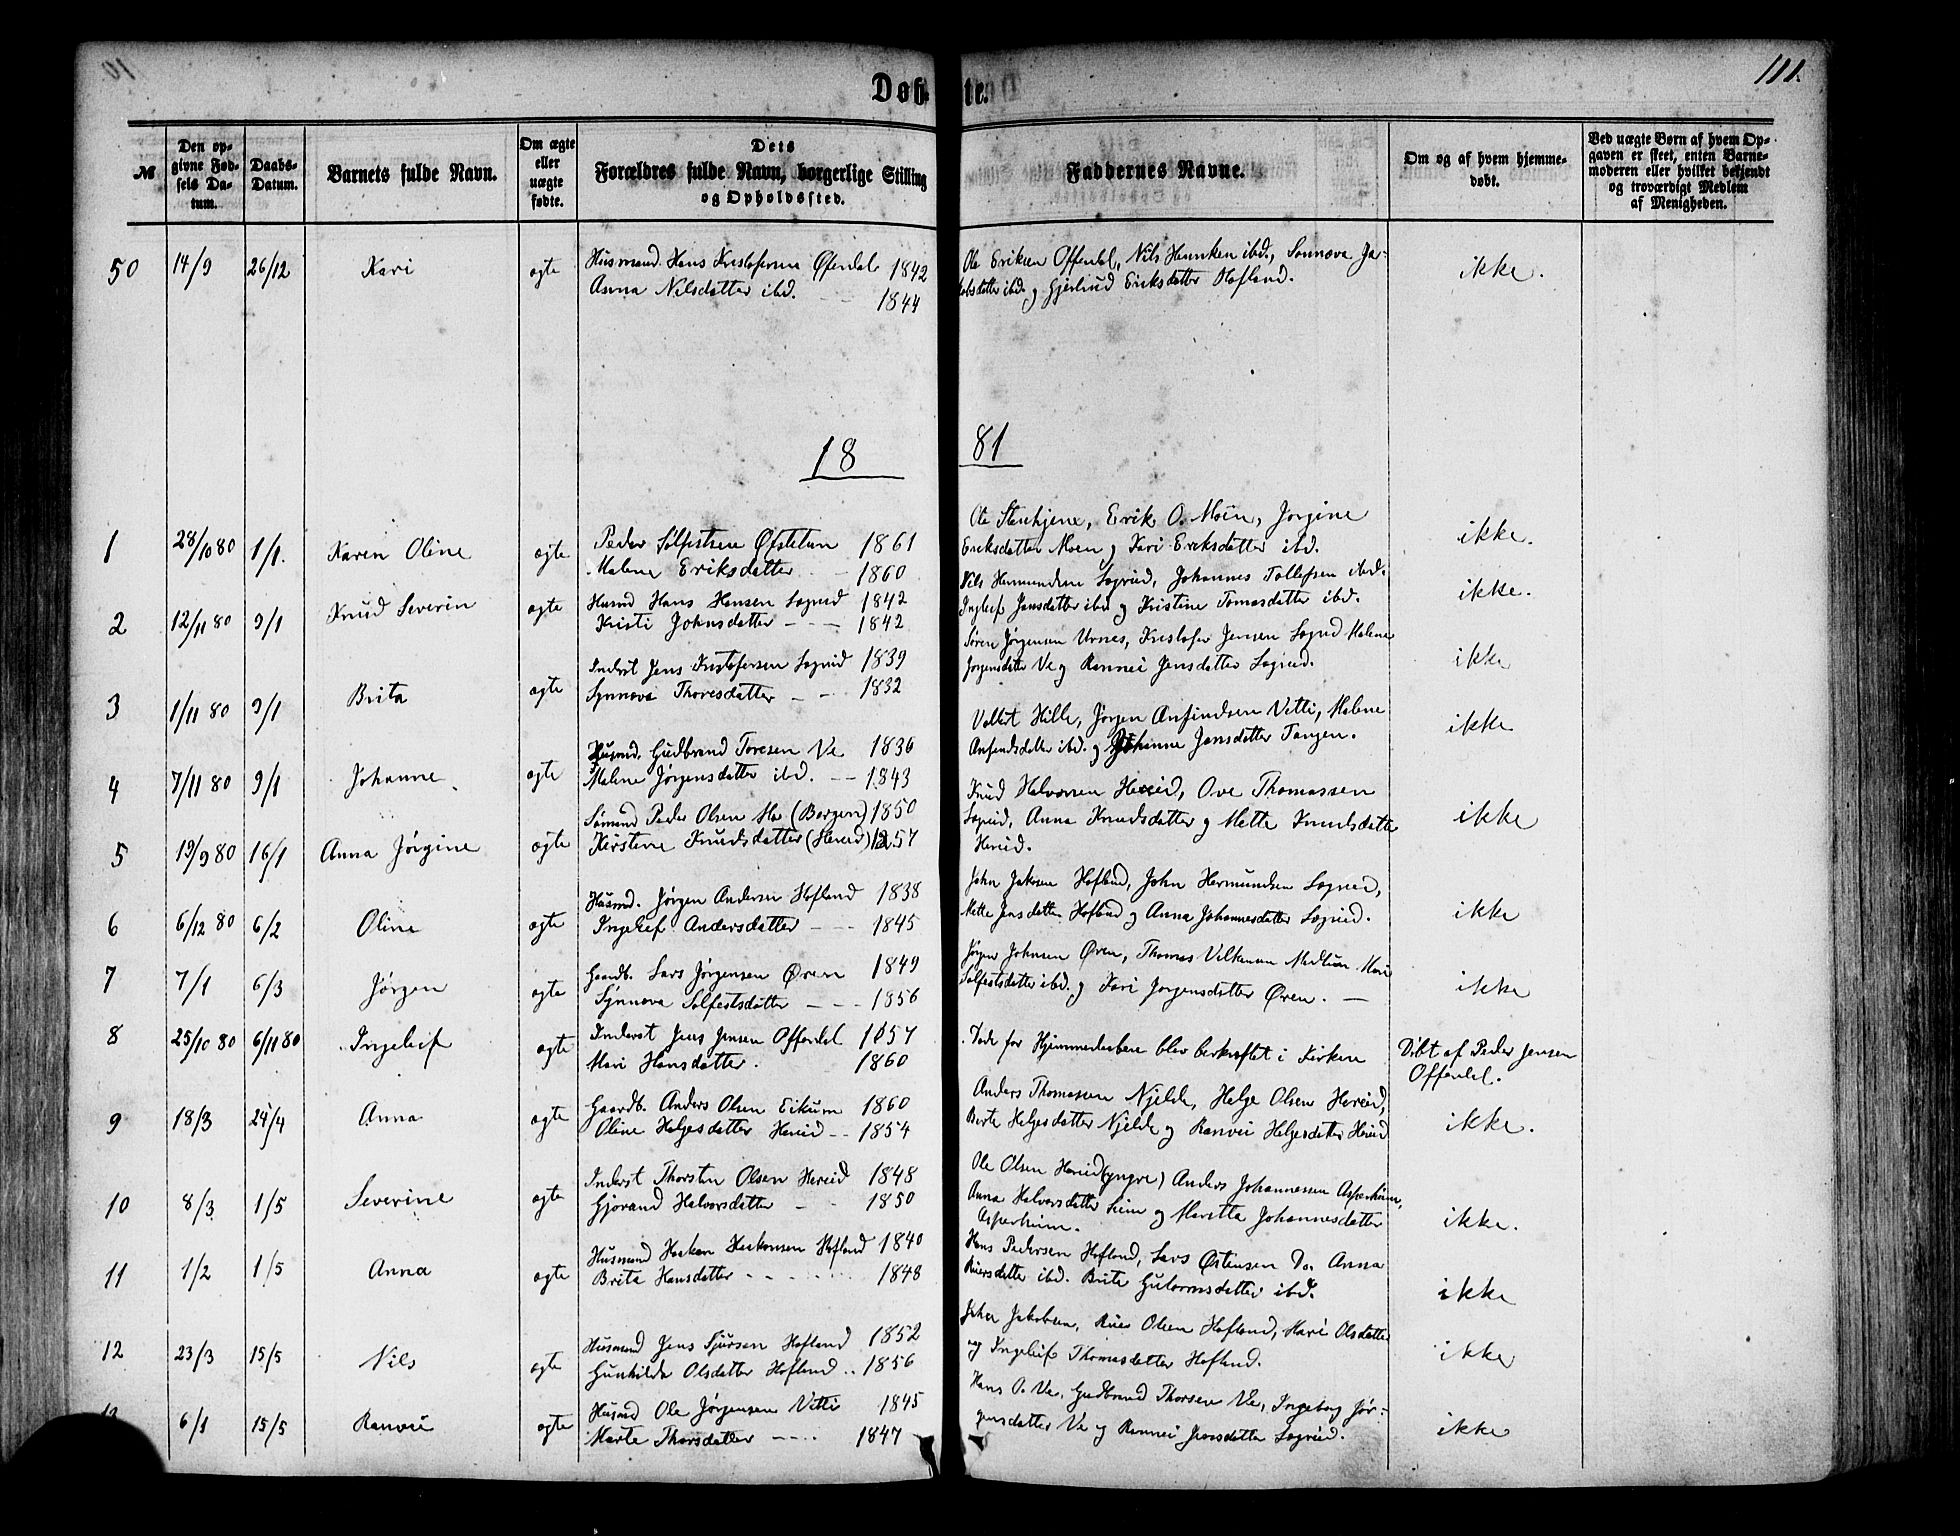 111.
Døb te.
№
Den opgivne Fødsels Datum.
Daabs-Datum.
Barnets fulde Navn.
Om ægte eller uægte fødte.
Dets Forældres fulde Navn, borgerlige Stilling og Opholdssted.
Faddernes Navne.
Om og af hvem hjemmedøbt.
Ved uægte Børn af hvem Opgaven er skeet, enten Barnemoderen eller hvilket bekjendt og troværdigt Medlem af Menigheden.
50 14/9 26/12 Kari ægte Husmand. Hans Kristofersen Øferdal 1842
Anna Nilsdatter ibd. 1844
Ole Eriksen Offerdal, Nils Hennken ibd., Sønnøve Ja-
kobsdatter ibd. og Gjertrud Eriksdatter Hofland.
ikke.
18 81
1 28/10 80 1/1. Karen Oline ægte Peder Solfestsen Øfstetun 1861
Malene Eriksdatter - 1860
Ole Stenhjene, Erik O. Moen, Jørgine
Eriksdatter Moen og Kari Eriksdatter ibd.
ikke.
2 12/11 80 9/1 Knud Severin ægte Husmd Hans Hansen Sogned 1842
Kristi Johnsdatter - - - 1842
Nils Hermundsen Sogned, Johannes Tollefsen ibd.
Ingleif Jensdatter ibd og Kristine Tomasdatter ibd.
ikke.
3 1/11 80 9/1 Brita ægte Inderst Jens Kristofersen Sogned 1839
Synnøva Thoresdatter - - 1832
Søren Jørgensen Urnes, Kristofer Jensen Sogned Malene
Jørgensdatter Ve og Rannei Jensdatter Sogned.
ikke
4 7/11 80 9/1 Johanne ægte Husmd. Gudbrand Toresen Ve 1836
Malene Jørgensdatter ibd. - - 1843
Hille, Jørgen Anfindsen Vetti, Malene
Anfindsdatter ibd. og Johanne Jensdatter Tangen.
ikke
5 19/9 80 16/1 Anna Jørgine ægte Sømand Peder Olsen Mo (Borgen) 1850
Kirstene Knudsdatter (Hereid) 1857
Knud Halvorsen Hereid, Ove Thomassen
Sogned, Anna Knudsdatter og Mette Knudsdatter
Hereid.
ikke
6 6/12 80 6/2 Oline ægte Husmd. Jørgen Andersen Hofland 1838
Ingeleif Andersdatter - - - 1845
John Jakosen Hofland, John Hermundsen Sogned,
Mette Jensdatter Hofland og Anna Johannesdatter Sogned.
ikke
7 7/1 6/3 Jørgen ægte Gaardb. Lars Jørgensen Øren 1849
Synnøva Solfestsdatter - - - 1856
Jørgen Johnsen Øren, Thomas Vilkensen Mari
Solfestsdatter ibd. og Kari Jørgensdatter Øren. -
ikke
8 25/10 80 6/11 80 Ingeleif ægte Inderst Jens Jensen Offerdal 1857
Mari Hansdatter. 1860
for Hjemmedaaben blev bekræftet i Kirken
Døbt af Peder Jensen
Offerdal.
9 18/3 24/4 Anna ægte Gaardb. Anders Olsen Eikum 1860
Oline Helgesdatter Hereid - - 1854
Anders Thomassen Njelde, Helge Olsen Hereid,
Berte Helgesdatter Njelde og Ranvei Helgesdatter Hereid
ikke.
10 8/3 1/5 Severine ægte Inderst Thorsten Olsen Hereid 1848
Gjørand Halvorsdatter - - 1850
Ole Olsen Hereid (yngre) Anders Johannesen Asperheim,
Anna Halvorsdatter Seim og Maritta Johannesdatter
Asperheim.
ikke.
11 1/2 1/5 Anna ægte Husmand Haakon Haakonsen Hofland 1840
Brita Hansdatter - - - 1848
Hans Pedersen Hofland, Lars Østensen Do. Anna
ibd. Brite Gutormsdatter ibd.
ikke
12 23/3 15/5 Nils ægte Husmand Jens Sjursen Hofland 1852
Gunhilda Olsdatter Hofland .. 1856
Johan Jakobsen, Olsen Hofland, Mari Olsdatter
og Ingeleif Thomasdatter Hofland.
ikke
13 6/1 15/5 Ranvei ægte Husmd Ole Jørgensen Vetti 1845
Marte Thorsdatter - - - 1847
Hans O. Ve, Gudbrand Thorsen Ve, Ingeborg Jør-
gensdatter Ve og Rannei Jensdatter Sogned.
ikke